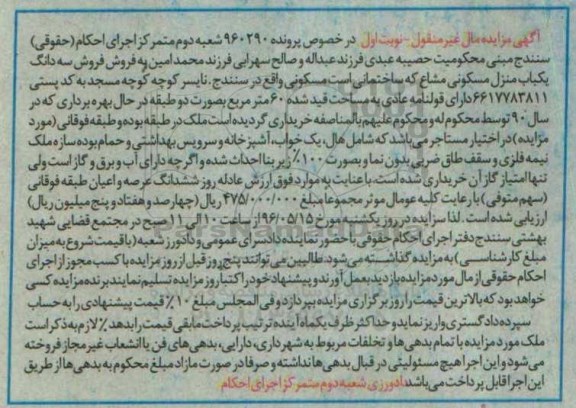 آگهی مزایده مال غیر منقول - نوبت اول در خصوص پرونده ۹۶۰۲۹۰ شعبه دوم متمرکز اجرای احکام (حقوقی)
سنندج مبنی محکومیت حصیبه عبدی فرزند عبداله و صالح سهرابی فرزند محمد امین به فروش فروش سه دانگ
یکباب منزل مسکونی مشاع که ساختمانی است مسکونی واقع در سنندج. نایسر کوچه کوچه مسجد به کد پستی
۶۶۱۷۷۸۳۸۱۱ دارای قولنامه عادی به مساحت قید شده ۶۰ متر مربع بصورت دو طبقه در حال بهره برداری که در
سال ۹۰ توسط محکوم له و محکوم علیهم بالمناصفه خریداری گردیده است ملک در طبقه بوده و طبقه فوقانی (مورد
مزایده) در اختیار مستأجر می باشد که شامل هال، یک خواب، آشپزخانه و سرویس بهداشتی و حمام بوده سازه ملک
نیمه فلزی و سقف طاق ضربی بدون نما و بصورت ۱۰۰٪ زیر بنا احداث شده و اگرچه دارای آب و برق و گاز است ولی
تنها امتیاز گاز آن خریداری شده است. با عنایت به موارد فوق ارزش عادله روز ششدانگ عرصه و اعیان طبقه فوقانی
(سهم متوفی) با رعایت کلیه عومال موثر مجموعا مبلغ ۴۷۵/۰۰۰/۰۰۰ ریال (چهارصد و هفتاد و پنج میلیون ریال)
ارزیابی شده است. لذا مزایده در روز یکشنبه مورخ ۹۶/۰۵/۱۵ از ساعت ۱۰ الی ۱۱ صبح در مجتمع قضایی شهید
بهشتی سنندج دفتر اجرای احکام حقوقی با حضور نماینده دادسرای عمومی و دادورز شعبه (با قیمت شروع به میزان
مبلغ کارشناسی) به مزایده گذاشته می شود. طالبین می توانند پنج روز قبل از روز مزایده با کسب مجوز از اجرای
احکام حقوقی از مال مورد مزایده بازدید بعمل آورند و پیشنهاد خود را کتبا روز مزایده تسلیم نمایند برنده مزایده کسی
خواهد بود که بالاترین قیمت را روز برگزاری مزایده بپردازد و فی المجلس مبلغ ۱۰٪ قیمت پیشنهادی را به حساب
سپرده دادگستری واریز نماید و حداکثر ظرف یکماه آینده ترتیب پرداخت مابقی قیمت را بدهد. لازم به ذکر است
ملک مورد مزایده با تمام بدهی ها و تخلفات مربوط به شهرداری، دارایی، بدهی های فن یا انشعاب غیر مجاز فروخته
می شود و این اجرا هیچ مسئولیتی در قبال بدهی ها نداشته و صرفا در صورت مازاد مبلغ محکوم به بدهی ها از طریق
این اجرا قابل پرداخت می باشد دادورزی شعبه دوم متمرکز اجرای احکام